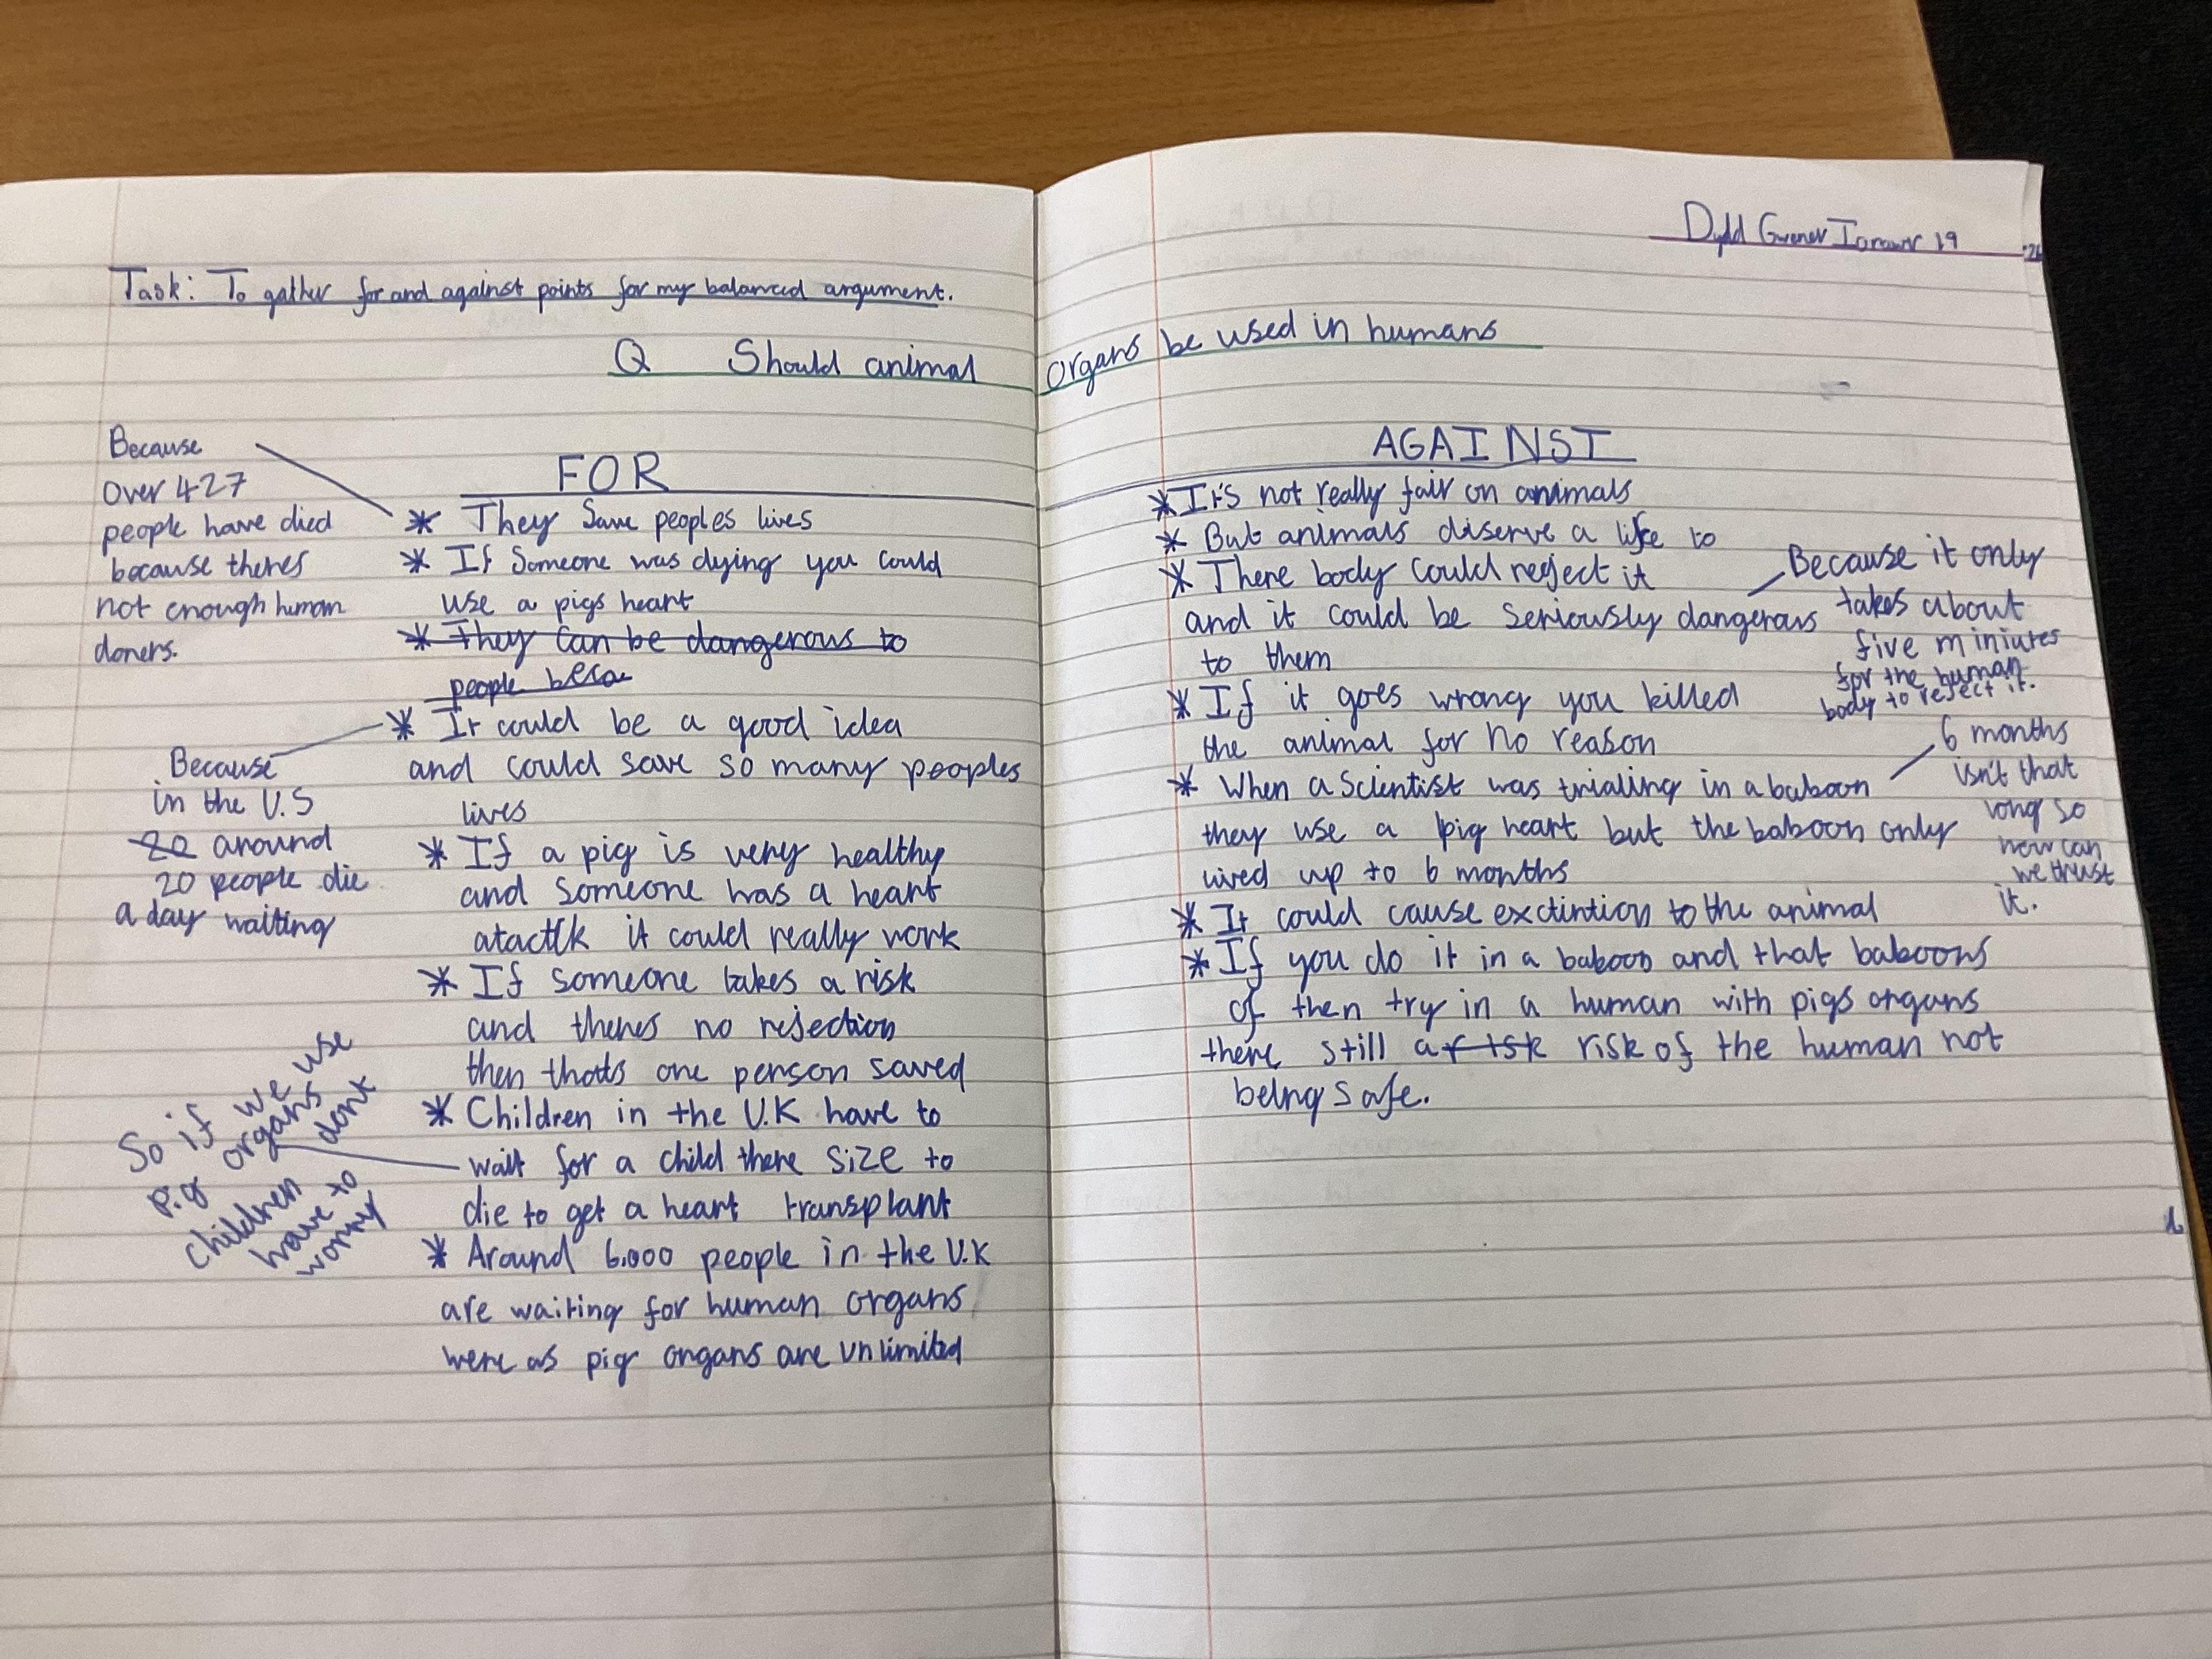 Dydd Gwener Ionawr 19
Task: To gather for and against points for my balanced argument.
Q Should animal organs be used in humans
FOR
* They Save peoples lives
Because
over 427
people have died
because theres
not enough human
doners.
* If Someone was dying you could
use a pigs heart
* They can be dangerous to
people becau
* It could be a good idea
and could save so many peoples
lives
Because
in the U.S
20 around
20 people die
a day waiting
* If a pig is very healthy
and someone has a heart
it could really work
* If someone takes a risk
and theres no rejection
then thats one person saved
* Children in the U.K have to
wait for a child there size to
die to get a heart transplant
So if we use
pig organs
children dont
have to
worry
* Around 6,000 people in the U.K
are waiting for human organs
were as pig organs are unlimited
AGAINST
* It's not really fair on animals
* But animals diserve a life to
* There body could reject it
and it could be seriously dangerous
to them
Because it only
takes about
five miniutes
for the human
body to reject it.
* If it goes wrong you killed
the animal for no reason
* When a scientist was trialing in a baboon
they use a pig heart but the baboon only
lived up to 6 months
6 months
isn't that
long so
how can
we trust
it.
* It could cause exctintion to the animal
* If you do it in a baboon and that baboons
of then try in a human with pigs organs
there still a risk of the human not
being safe.